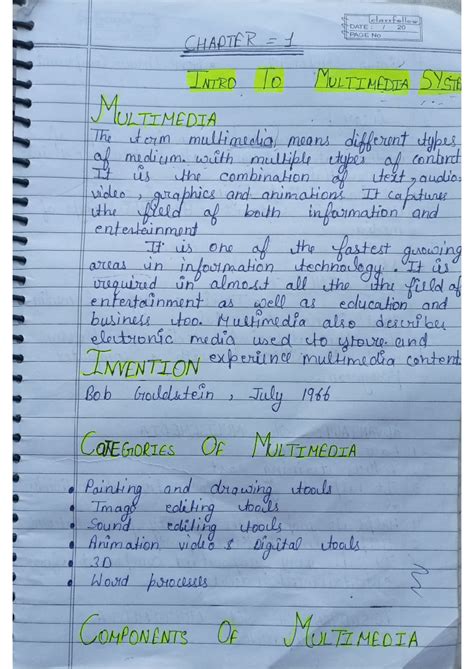 classfellow
DATE: / / 20
PAGE No
CHAPTER = 1
INTRO TO MULTIMEDIA SYSTE
MULTIMEDIA
The term multimedia, means different types
of medium with multiple types of content
It is the combination of text, audio,
video, graphics and animations. It captures
the field of both information and
entertainment
It is one of the fastest growing
areas in information technology. It is
required in almost all the the field of
entertainment as well as education and
business too. Multimedia also describes
electronic media used to store and
experience multimedia content
INVENTION
Bob Goldstein, July 1966
CATEGORIES OF MULTIMEDIA
• Painting and drawing tools
• Image editing tools
• Sound editing tools
• Animation, video & Digital tools
• 3D
• Word processes
COMPONENTS OF MULTIMEDIA